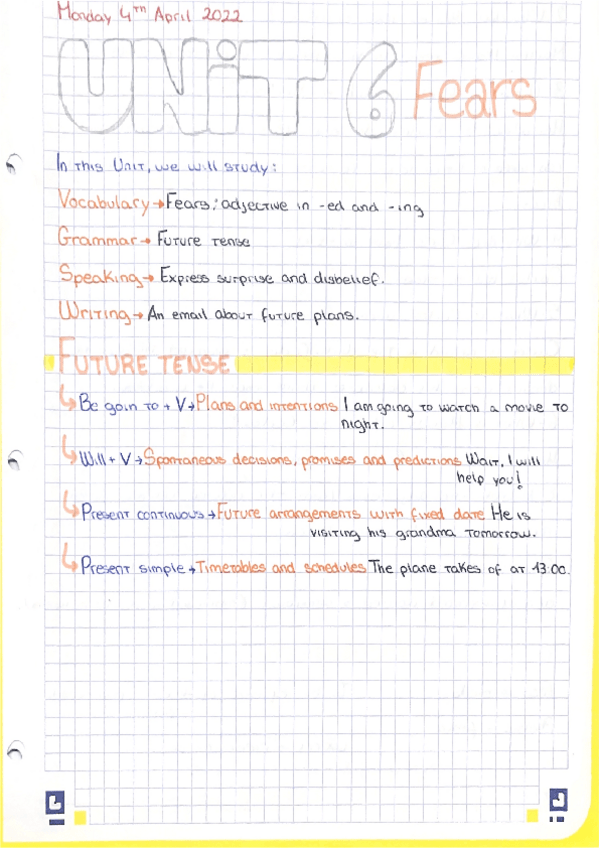 Monday 4th April 2022
UNiT 6 Fears
In this Unit, we will study:
Vocabulary → Fears; adjective in -ed and -ing
Grammar → Future tense
Speaking → Express surprise and disbelief.
Writing → An email about future plans.
FUTURE TENSE
↳ Be goin to + V → Plans and intentions I am going to watch a movie to
night.
↳ Will + V → Spontaneous decisions, promises and predictions Wait, I will
help you!
↳ Present continuous → Future arrangements with fixed date He is
visiting his grandma tomorrow.
↳ Present simple → Timetables and schedules The plane takes of at 13:00.